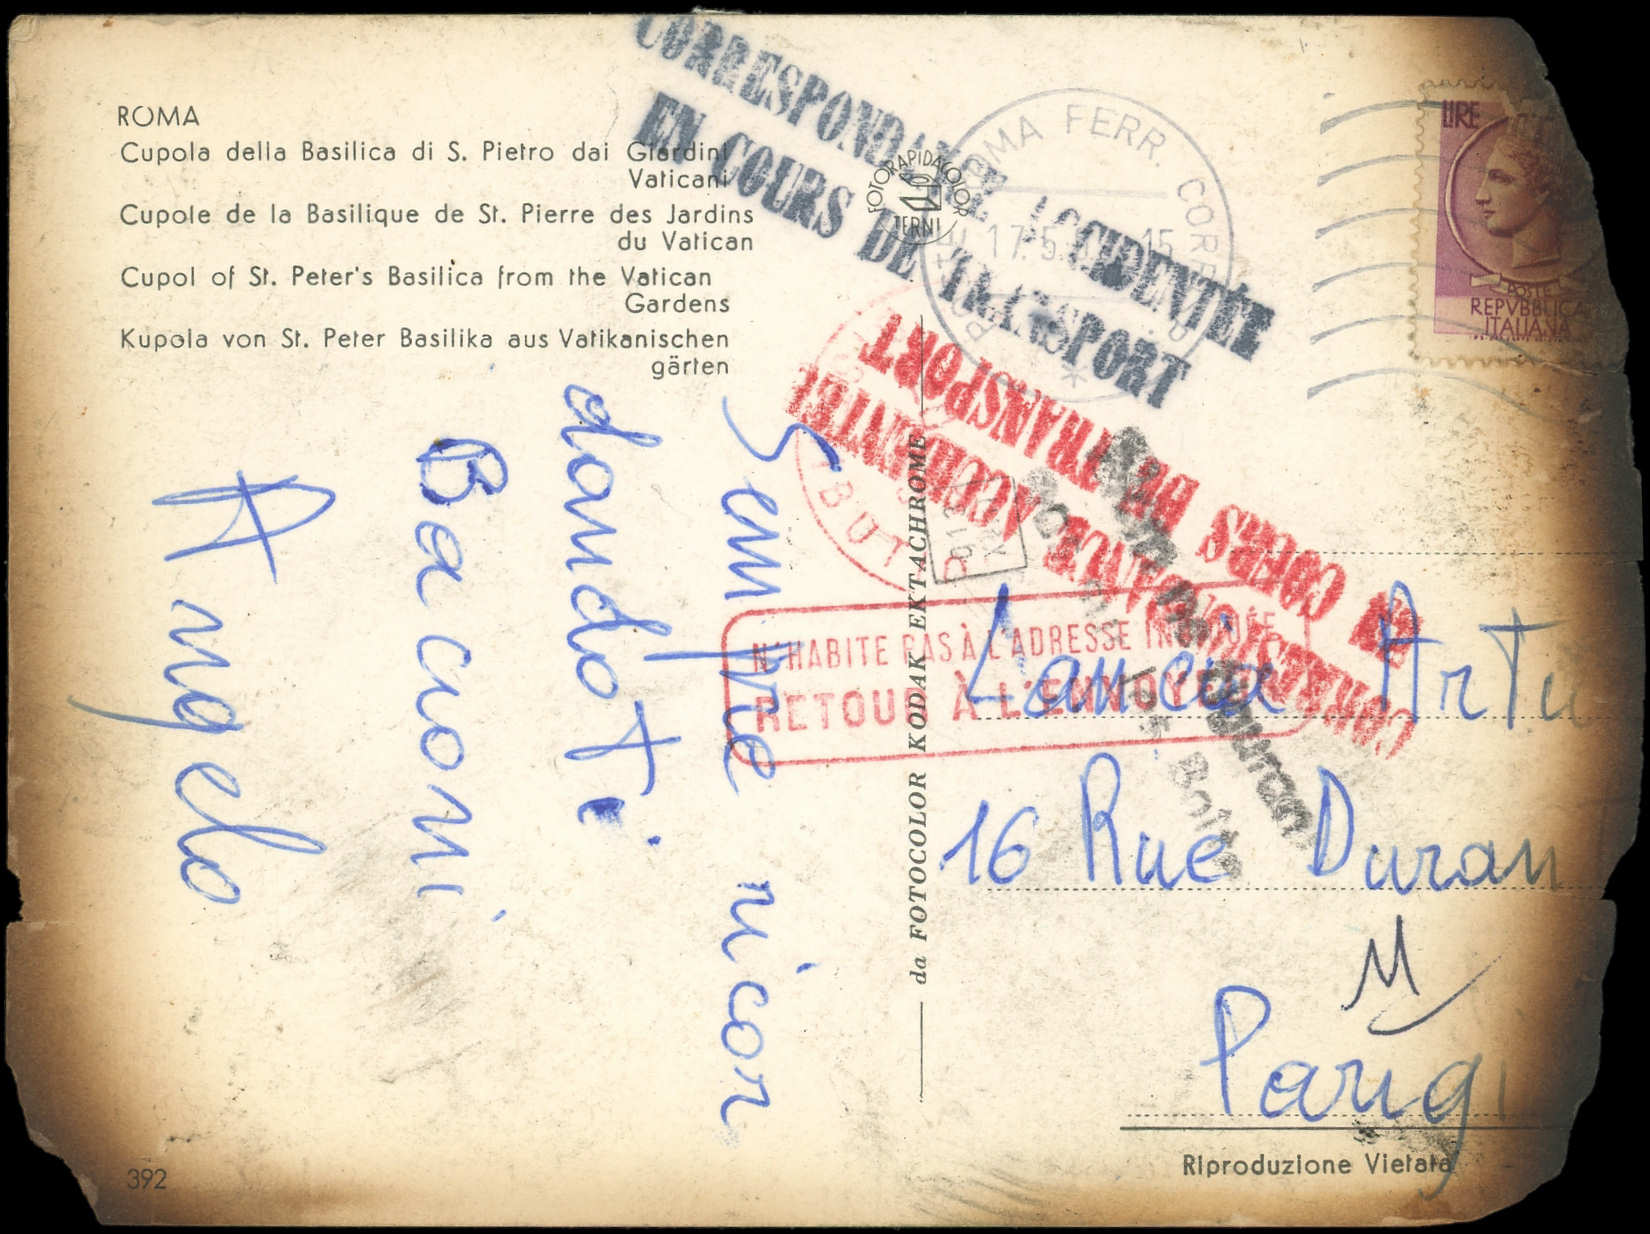 ROMA
Cupola della Basilica di S. Pietro dai Giardini
Vaticani
Cupole de la Basilique de St. Pierre des Jardins
du Vatican
Cupol of St. Peter's Basilica from the Vatican
Gardens
Kupola von St. Peter Basilika aus Vatikanischen
gärten
CORRESPONDANCE ACCIDENTÉE
EN COURS DE TRANSPORT
FOTORAPIDACOLOR
TERNI
ROMA FERR. CORR
17.5
15
LIRE
POSTE
REPVBBLICA
ITALIANA
CORRESPONDANCE ACCIDENTÉE
EN COURS DE TRANSPORT
N'HABITE PAS À L'ADRESSE INDIQUÉE
RETOUR À L'ENVOYEUR
REBUT
da FOTOCOLOR KODAK EKTACHROME
Sempre ricor
dandoti
Bacioni
Angelo
Lancia Artu
16 Rue Duran
Parigi
Riproduzione Vietata
392